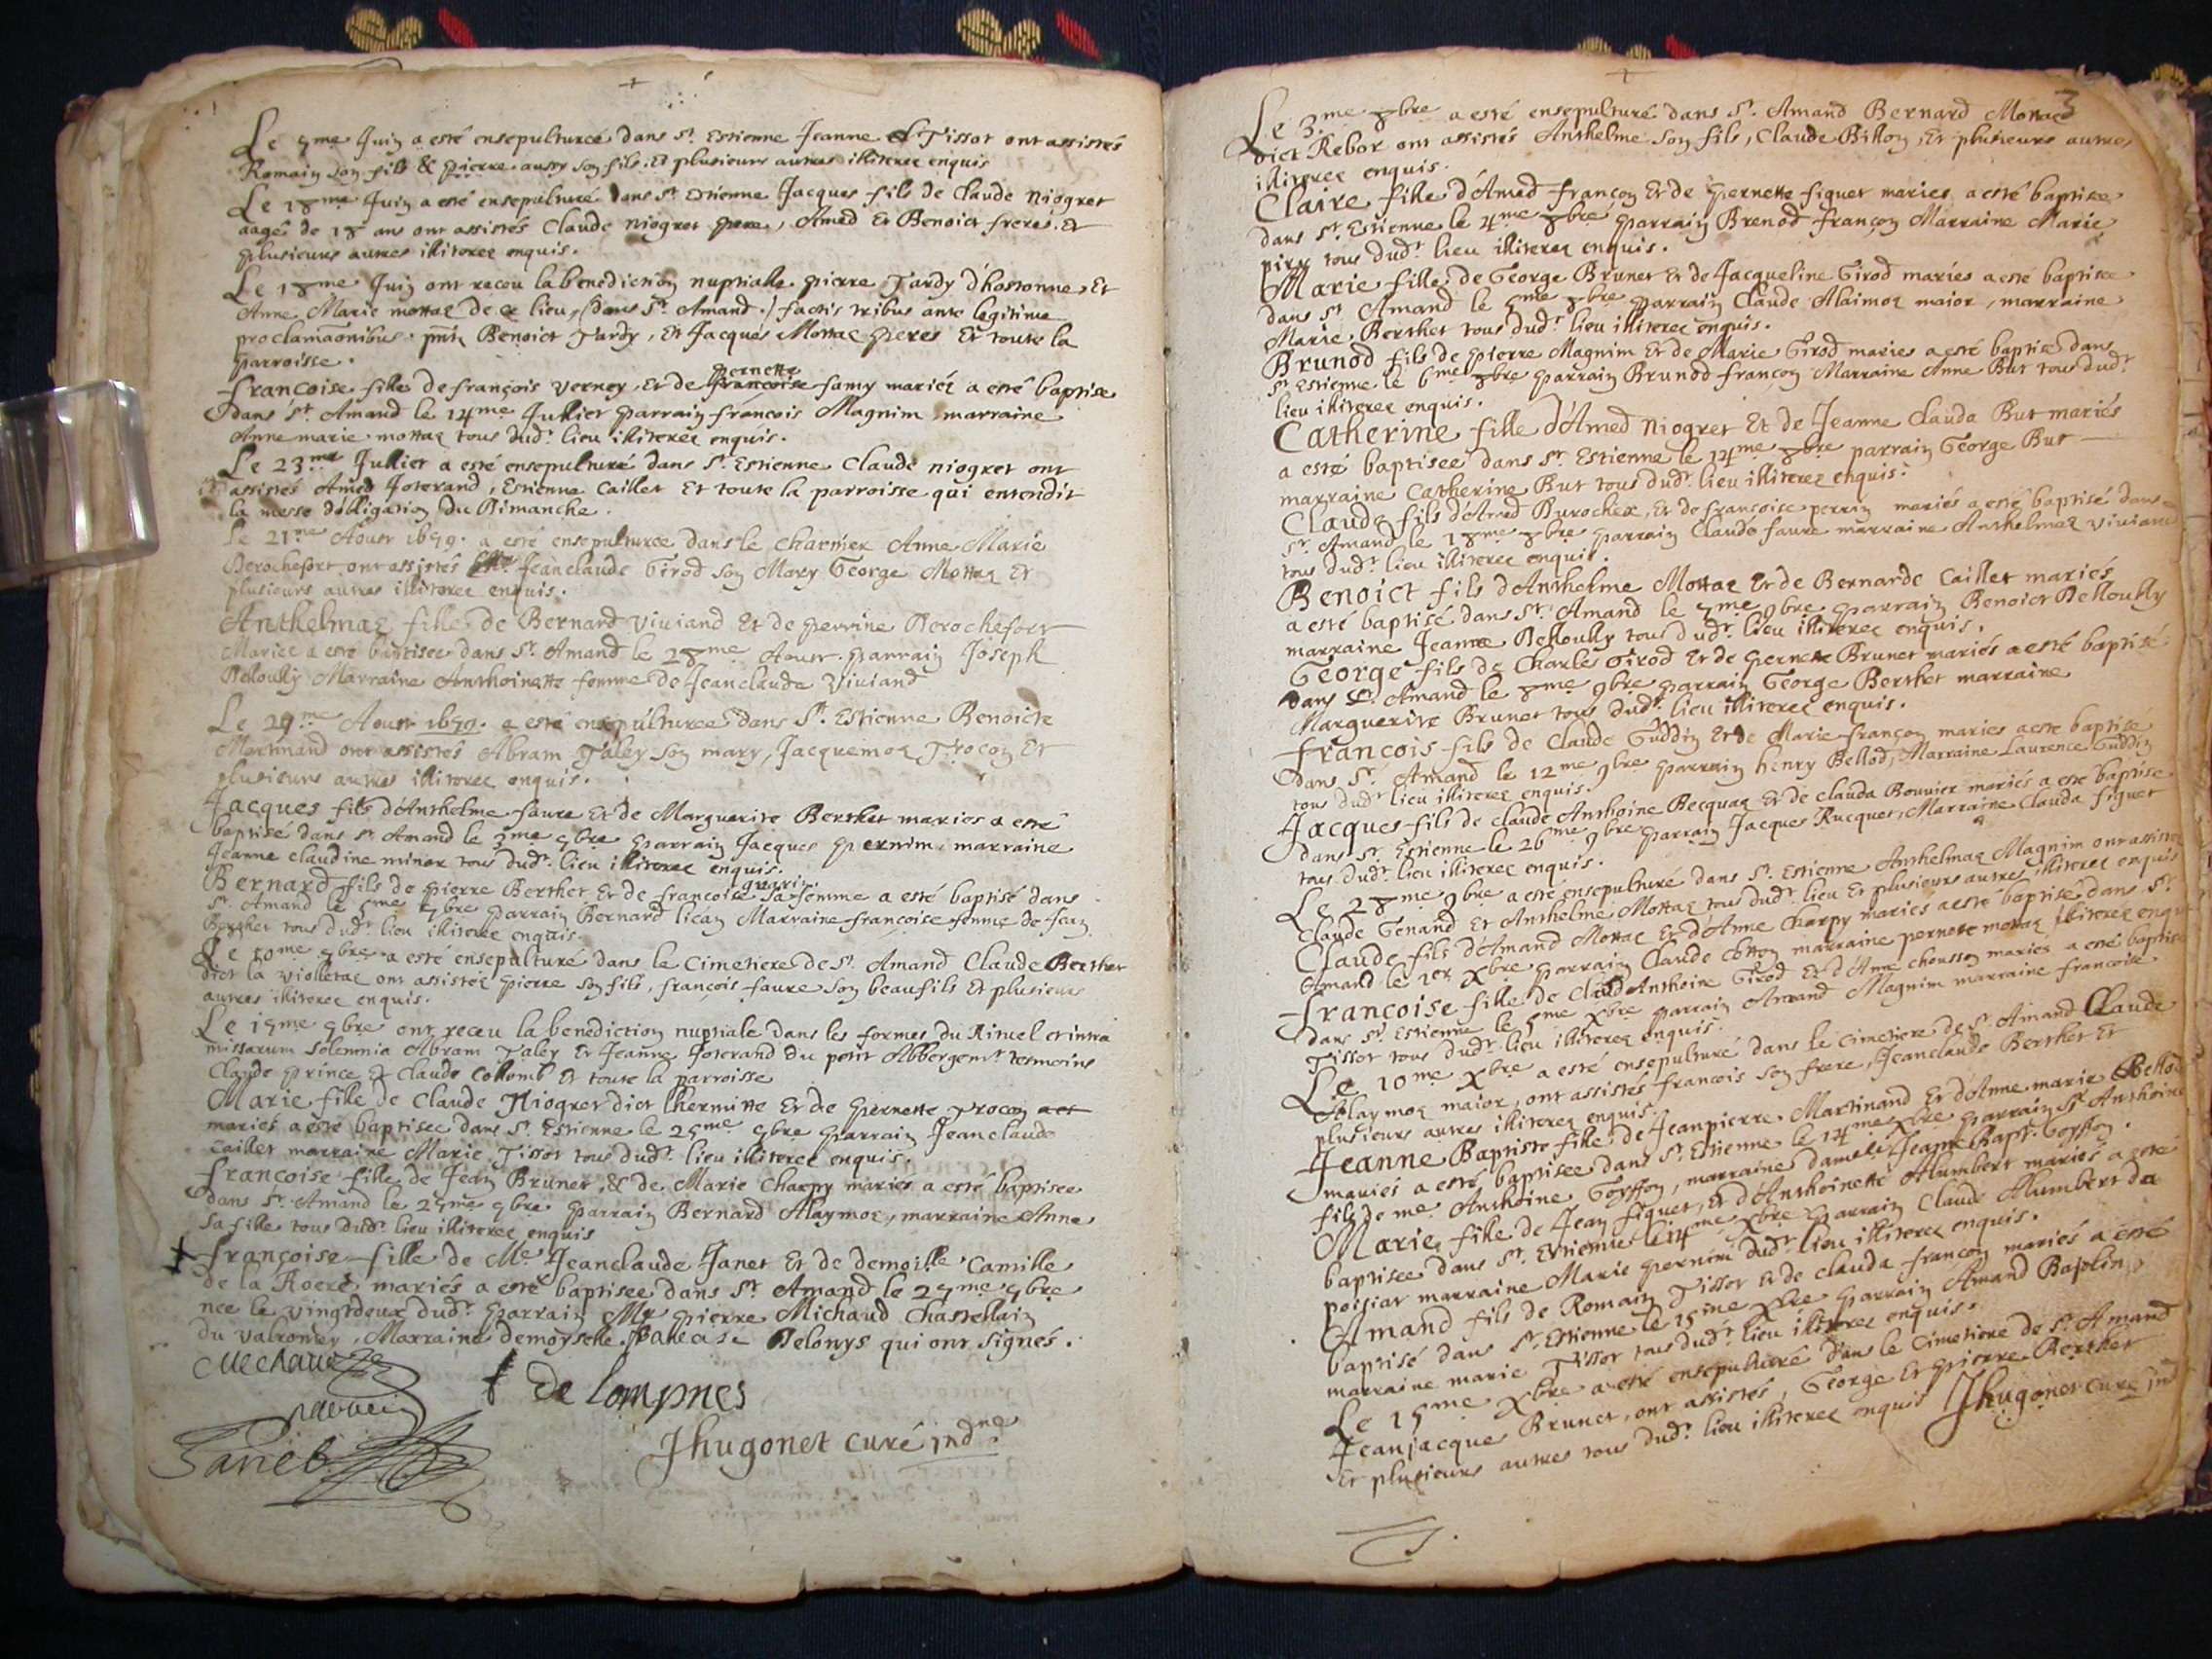 Le 5me Juin a esté ensepulturée dans St. Estienne Jeanne Tissot ont assistés
Romain son fils & pierre aussy son fils. Et plusieurs autres illiterez enquis
Le 18me Juin a esté ensepulturé dans St. Estienne Jacques fils de Claude Niogret
aagé de 18 ans ont assistés Claude Niogret pere, Amed Et Benoict freres. Et
plusieurs autres illiterez enquis.
Le 18me Juin ont receu la benediction nuptialle pierre Tardy d'hostonne, Et
Anne Marie mottaz de ce lieu, (dans St. Amand.) factis tribus ante legitime
proclamaonibus. pntz Benoict Tardy, Et Jacques Mottaz peres Et toute la
parroisse.
pernette
francoise fille de françois verney, et de francoise famy mariéz a esté baptise
dans St. Amand le 14me Jullier parrain francois Magnim marraine
Anne marie mottaz tous dudt. lieu illiterez enquis.
Le 23me Jullier a esté ensepulturé dans St. Estienne Claude niogret ont
assistés Amed Joterand, Estienne Caillet Et toute la parroisse qui entendit
la messe dobligation du Dimanche.
Le 21me Aoust 1659. a esté ensepulturee dans le charnier Anne Marie
Derochefort ont assistés Jeanclaude Girod son Mary George Mottaz Et
plusieurs autres illiterez enquis.
Anthelmaz fille de Bernard viviand Et de perrine Derochefort
Mariez a esté baptisee dans St. Amand le 28me Aoust. parrain Joseph
Belloully Marraine Anthoinette femme de Jeanclaude Viviand
Le 29me Aoust 1659. a esté ensepulturee dans St. Estienne Benoicte
Martinand ont assistés Abram Taley son mary, Jacquemoz Trocon Et
plusieurs autres illiterez enquis.
Jacques fils d'Anthelme faure Et de Marguerite Berthet mariés a esté
baptisé dans St. Amand le 3me 9bre parrain Jacques pernim. marraine
Jeanne claudine minor tous dudt. lieu illiterez enquis.
Bernard fils de pierre Berthet Et de francoise sa femme a esté baptisé dans
St. Amand le 5me 9bre parrain Bernard Marraine francoise femme de Jean
Berthet tous dudt. lieu illiterez enquis.
Le 10me 9bre a esté ensepulturé dans le Cimetiere de St. Amand Claude Berthet
dict la violletaz ont assistéz pierre son fils, françois faure son beaufils Et plusieurs
autres illiterez enquis.
Le 15me 9bre ont receu la benediction nuptiale dans les formes du Rituel et intra
missarum solemnia Abram Taley Et Jeanne Joterand du petit Abbergemt. tesmoins
Claude prince & Claude Collomb Et toute la parroisse
Marie fille de Claude Niogret dict lhermitte Et de pernette Trocon
mariés a esté baptisee dans St. Estienne le 25me 9bre parrain Jeanclaude
caillet marraine Marie Tissot tous dudt. lieu illiterez enquis.
francoise fille de Jean Brunet, & de Marie Charpy mariés a esté baptisee
dans St. Amand le 25me 9bre parrain Bernard Alaymoz, marraine Anne
sa fille tous dudt. lieu illiterez enquis
françoise fille de Me. Jeanclaude Janet Et de demoille Camille
de la Roere mariés a esté baptisee dans St. Amand le 25me 9bre
nee le vingtdeux dudt. parrain Me pierre Michaud Chastellain
du valromey, Marraine demoyselle Delomys qui ont signés.
Michaud
parrain
de lompnes
Janet
Jhugonet curé indne
3
Le 3me 8bre a esté ensepulturé dans St. Amand Bernard Mottaz
dict Rebor ont assistés Anthelme son fils, Claude Billon, Et plusieurs autres
illiterez enquis.
Claire fille d'Amed françon Et de pernette figuet mariez a esté baptisee
dans St. Estienne le 4me 8bre parrain Brenod françon Marraine Marie
tous dudt. lieu illiterez enquis.
Marie fille de George Brunet Et de Jacqueline Girod mariés a esté baptisee
dans St. Amand le 5me 8bre parrain Claude Alaimoz maior, marraine
Marie Berthet tous dudt. lieu illiterez enquis.
Brunod fils de pierre Magnim Et de Marie Girod mariés a esté baptisé dans
St. Estienne le 6me 8bre parrain Brunod françon Marraine Anne But tous dudt.
lieu illiterez enquis.
Catherine fille d'Amed Niogret Et de Jeanne Clauda But mariés
a esté baptisee dans St. Estienne le 14me 8bre parrain George But
marraine Catherine But tous dudt. lieu illiterez enquis.
Claude fils d'Amed Durochez, Et de francoise perrin mariés a esté baptisé dans
St. Amand le 18me 8bre parrain Claude faure marraine Anthelmaz viviand
tous dudt. lieu illiterez enquis.
Benoict fils d'Anthelme Mottaz Et de Bernarde Caillet mariés
a esté baptisé dans St. Amand le 5me 9bre parrain Benoict Belloully
marraine Jeanne Belloully tous dudt. lieu illiterez enquis.
George fils de Charles Girod Et de pernette Brunet mariés a esté baptisé
dans St. Amand le 8me 9bre parrain George Berthet marraine
Marguerite Brunet tous dudt. lieu illiterez enquis.
francois fils de Claude Guddin Et de Marie françon mariés a esté baptisé
dans St. Amand le 12me 9bre parrain henry Bellod, Marraine Laurence Guddin
tous dudt. lieu illiterez enquis.
Jacques fils de Claude Anthoine Becquaz Et de Clauda Bouvier mariés a esté baptisé
dans St. Estienne le 26me 9bre parrain Jacques Rucquet, Marraine Clauda figuet
tous dudt. lieu illiterez enquis.
Le 28me 9bre a esté ensepulturé dans St. Estienne Anthelmaz Magnim ont assistés
Claude Genand Et Anthelme Mottaz tous dudt. lieu Et plusieurs autres illiterez enquis
Claude fils d'Amand Mottaz Et d'Anne Charpy mariés a esté baptisé dans St.
Amand le 1er Xbre parrain Claude marraine pernette mottaz illiterez enquis
francoise fille de Claude Anthoine Girod Et d'Anne chousson mariés a esté baptisee
dans St. Estienne le 5me Xbre parrain Amand Magnim marraine francoise
Tissot tous dudt. lieu illiterez enquis.
Le 10me Xbre a esté ensepulturé dans le Cimetiere de St. Amand Claude
Alaymoz maior, ont assistés francois son frere, Jeanclaude Berthet Et
plusieurs autres illiterez enquis.
Jeanne Baptiste fille de Jeanpierre Martinand Et d'Anne marie Bellod
mariés a esté baptisee dans St. Estienne le 14me Xbre parrain Sr. Anthoine
fils de me. Anthoine Goyffon, marraine damelle Jeanne Bapt. Goyffon.
Marie fille de Jean figuet, Et d'Anthoinette Alumbert mariés a esté
baptisee dans St. Estienne le 14me Xbre parrain Claude Alumbert de
poisiat marraine Marie pernim dudt. lieu illiterez enquis.
Amand fils de Romain Tissot Et de Clauda françon mariés a esté
baptisé dans St. Estienne le 15me Xbre parrain Amand Bajolin,
marraine marie Tissot tous dudt. lieu illiterez enquis.
Le 15me Xbre a esté ensepulturé dans le Cimetiere de St. Amand
Jeanjacque Brunet, ont assistés, George Et pierre Berthet
Et plusieurs autres tous dudt. lieu illiterez enquis Jhugonet curé ind